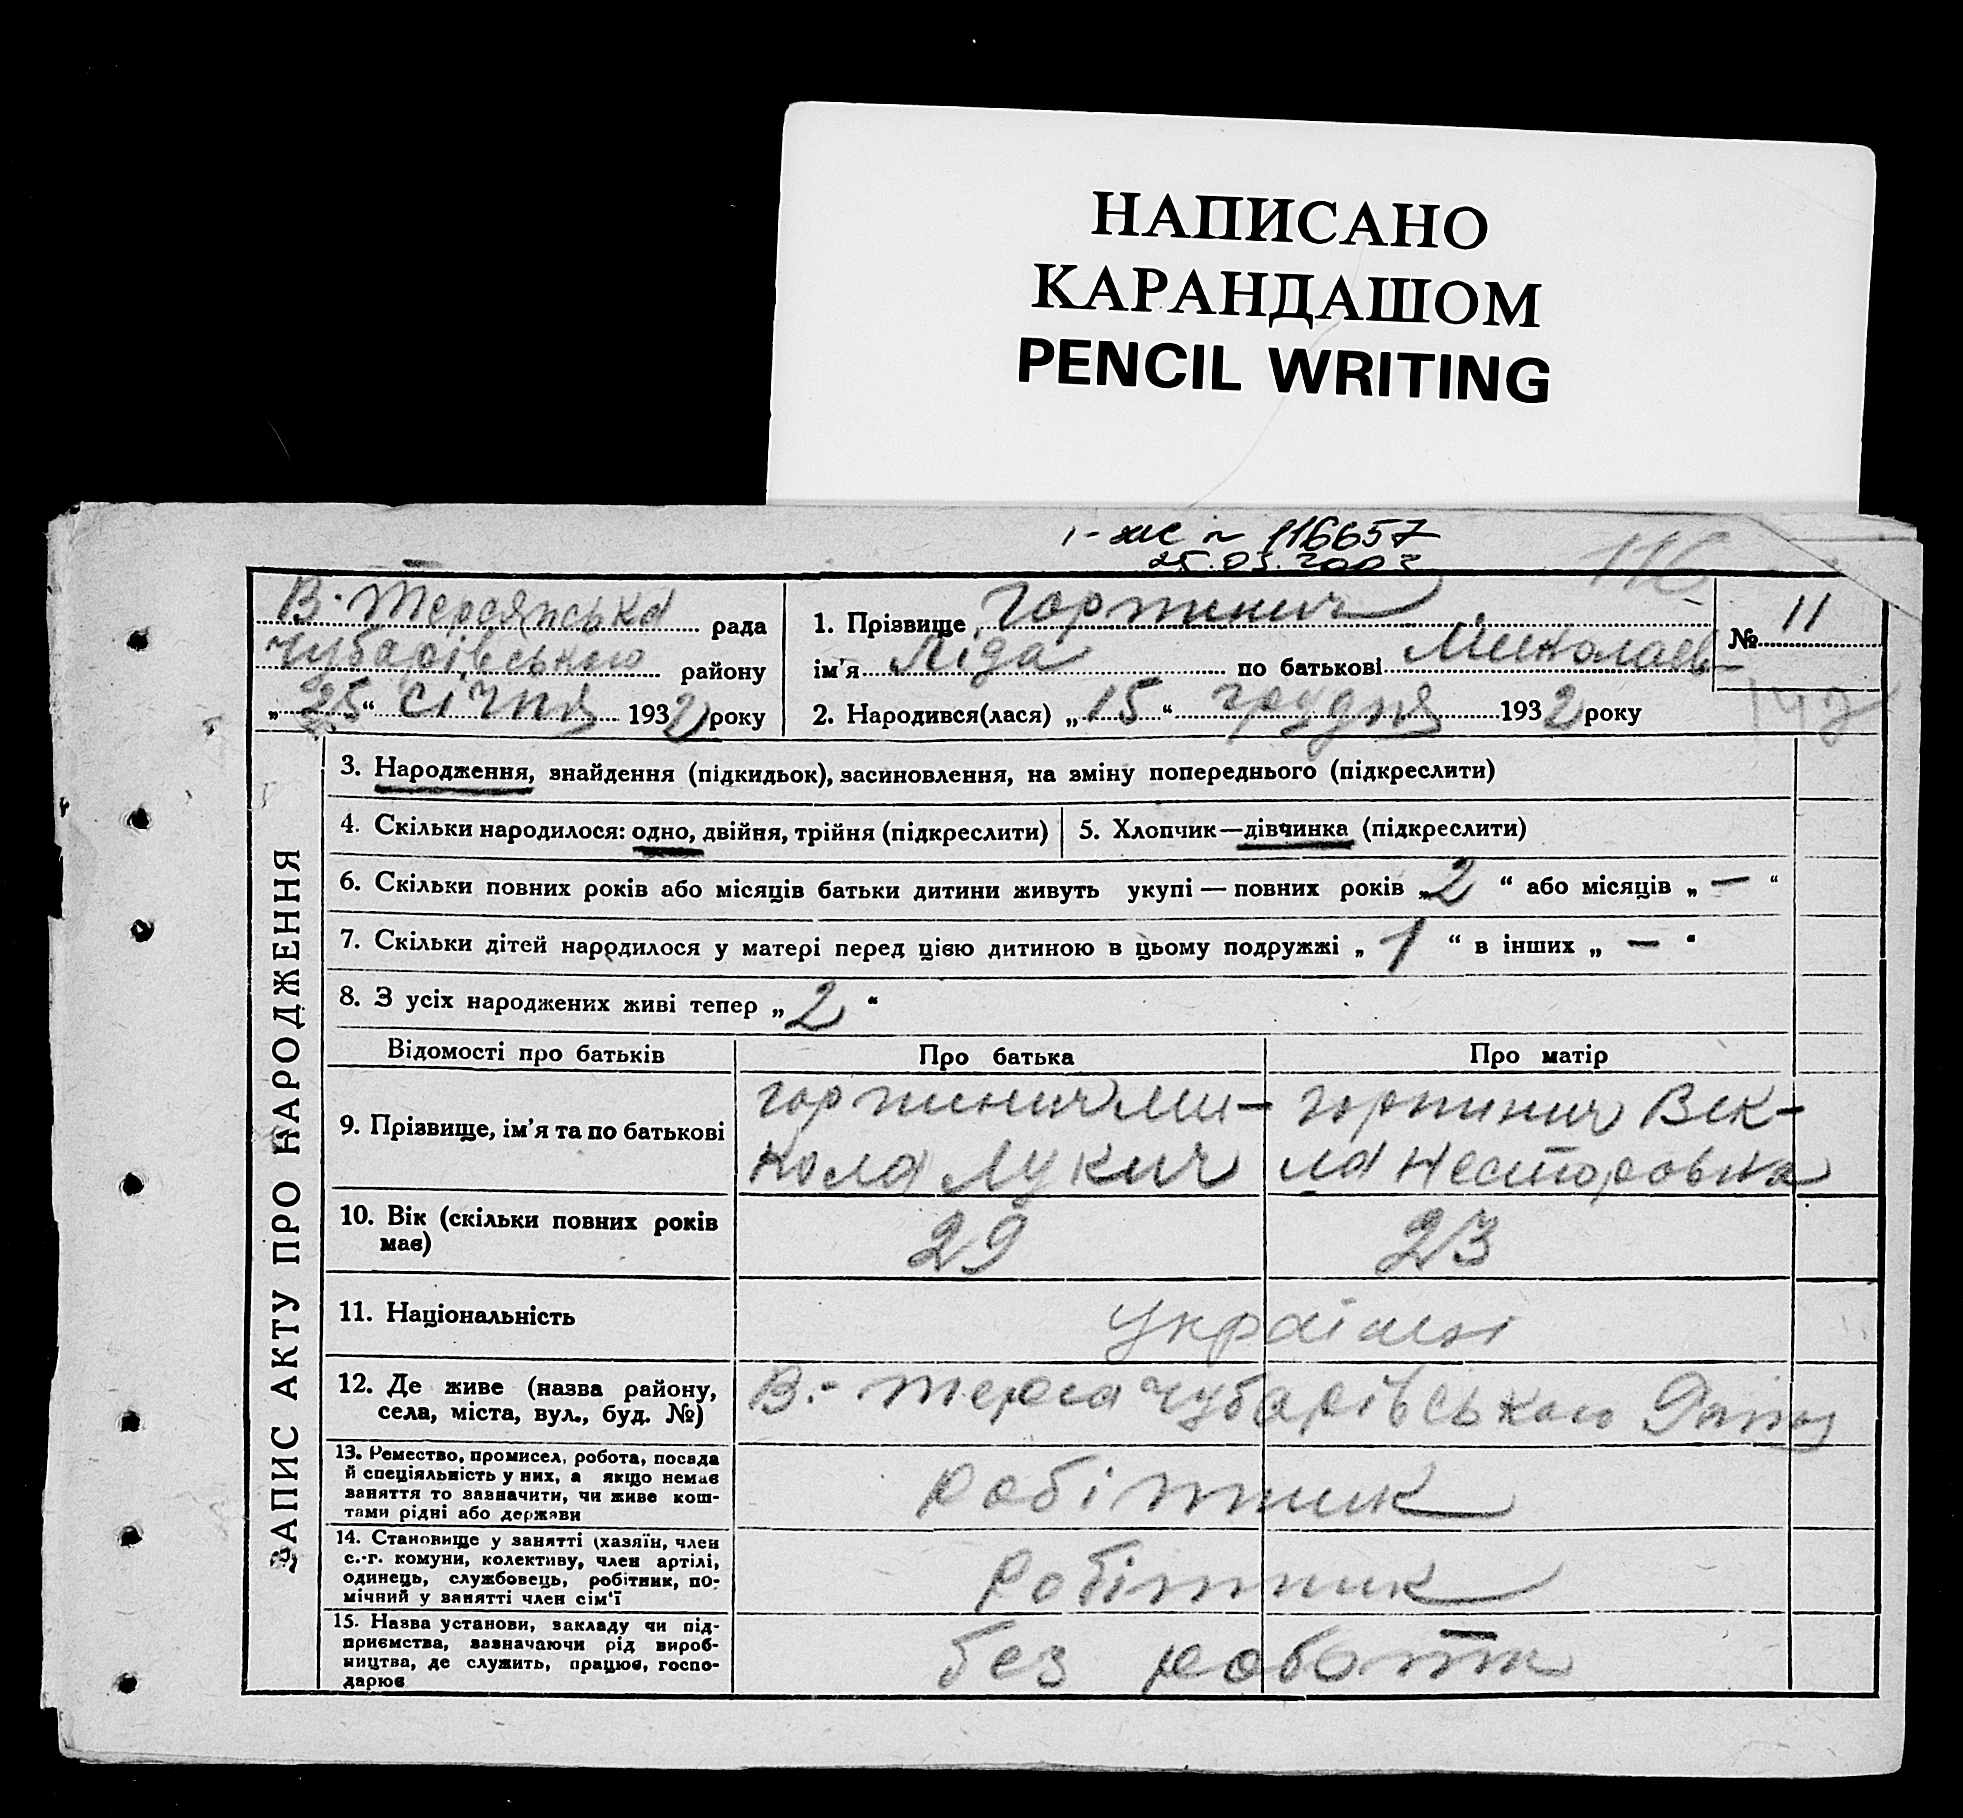 НАПИСАНО
КАРАНДАШОМ
PENCIL WRITING
116657
25.03.2003
116
В. Терсянська рада
Чубарівського району
„25“ січня 1932 року
1. Прізвище Горпинич
ім’я Ліда по батькові Миколаев-
2. Народився(лася) „15“ грудня 1932 року
№ 11
ЗАПИС АКТУ ПРО НАРОДЖЕННЯ
3. Народження, знайдення (підкидьок), засиновлення, на зміну попереднього (підкреслити)
4. Скільки народилося: одно, двійня, трійня (підкреслити)
5. Хлопчик—дівчинка (підкреслити)
6. Скільки повних років або місяців батьки дитини живуть укупі — повних років „2“ або місяців „—“
7. Скільки дітей народилося у матері перед цією дитиною в цьому подружжі „1“ в інших „—“
8. З усіх народжених живі тепер „2“
Відомості про батьків
Про батька
Про матір
9. Прізвище, ім’я та по батькові
Горпинич Ми-
кола Лукич
Горпинич Век-
ла Несторовна
10. Вік (скільки повних років
має)
29
23
11. Національність
Українці
12. Де живе (назва району,
села, міста, вул., буд. №)
В.-Терса Чубарівського
13. Ремество, промисел, робота, посада
й спеціяльність у них, а якщо немає
заняття то зазначити, чи живе кош-
тами рідні або держави
робітник
14. Становище у занятті (хазяїн, член
с.-г. комуни, колективу, член артілі,
одинець, службовець, робітник, по-
мічний у занятті член сім’ї
робітник
15. Назва установи, закладу чи під-
приємства, зазначаючи рід вироб-
ництва, де служить, працює, госпо-
дарює
без роботи